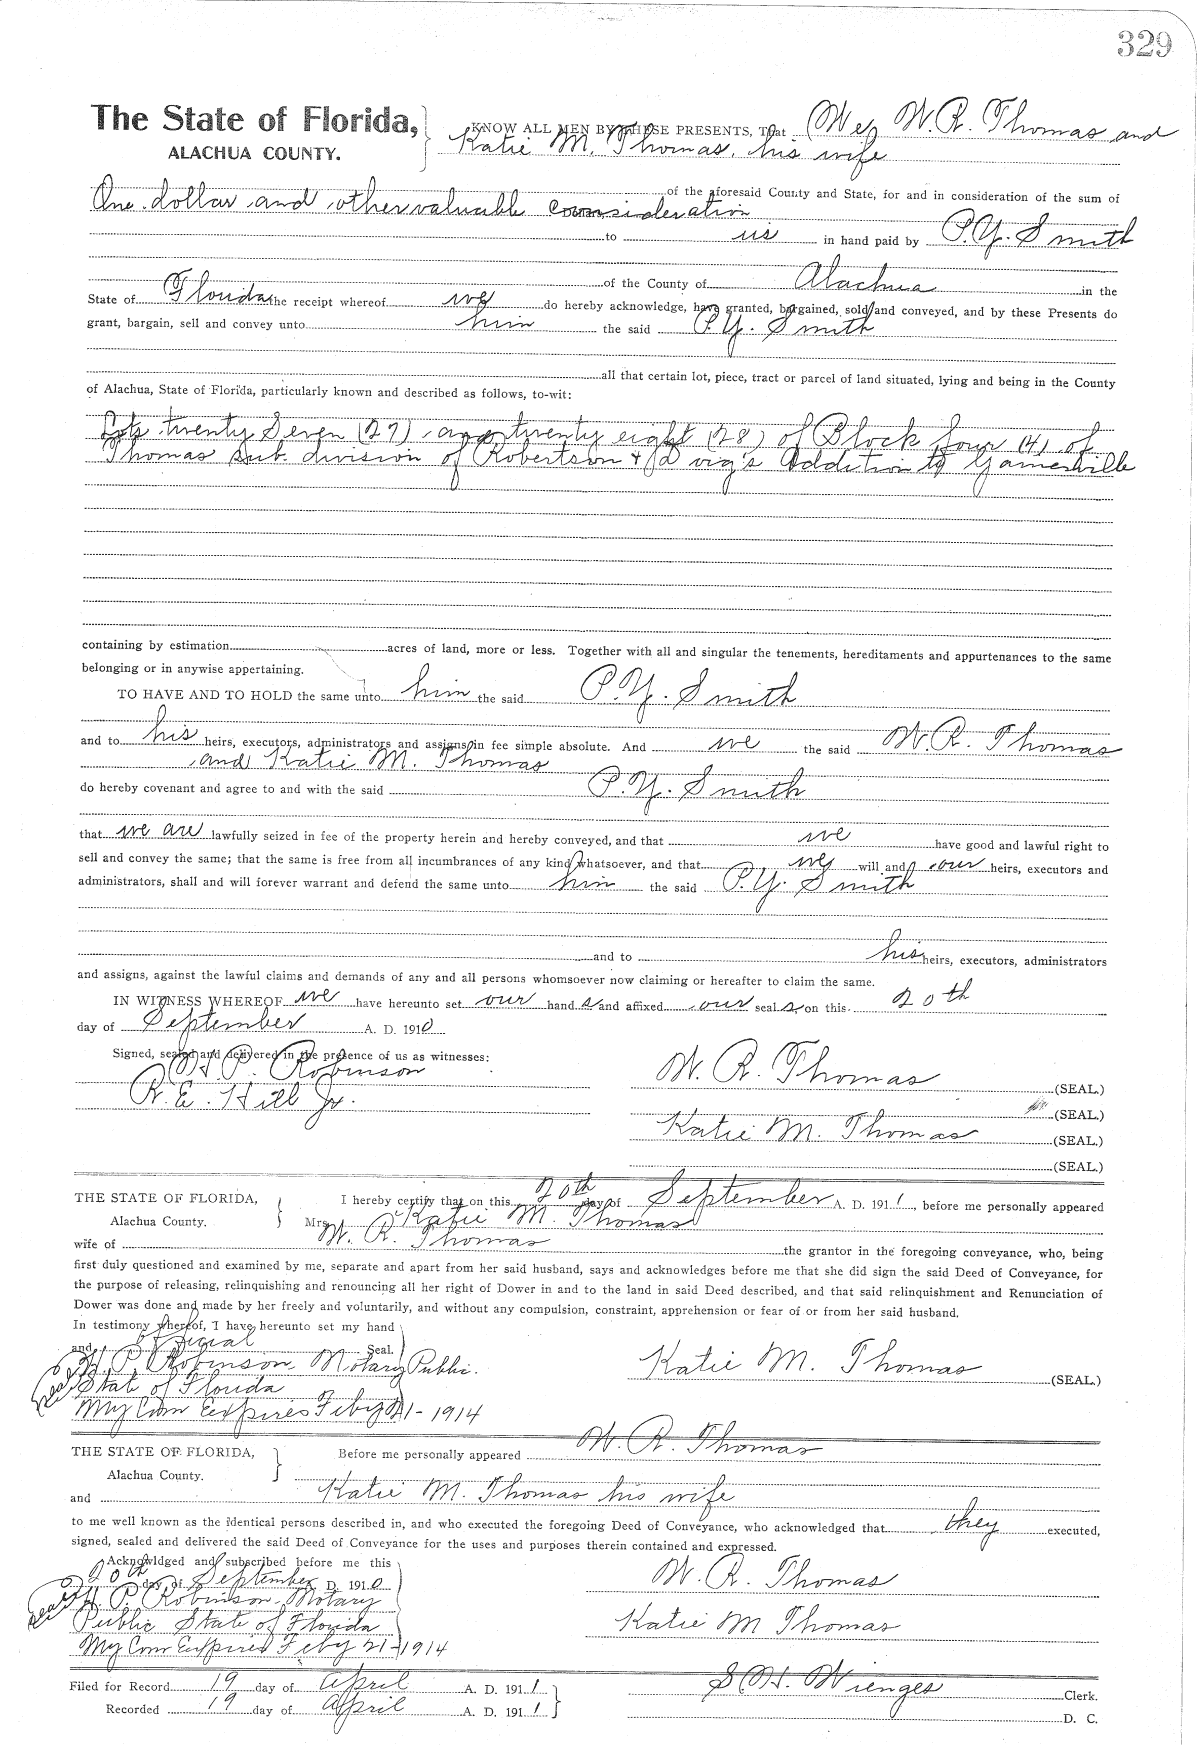 329
The State of Florida,
ALACHUA COUNTY.
KNOW ALL MEN BY THESE PRESENTS, That We, W. R. Thomas and
Katie M. Thomas, his wife
of the aforesaid County and State, for and in consideration of the sum of
One dollar and other valuable comnsideration
to us in hand paid by P. Y. Smith
of the County of Alachua in the
State of Florida the receipt whereof we do hereby acknowledge, have granted, bargained, sold and conveyed, and by these Presents do
grant, bargain, sell and convey unto him the said P. Y. Smith
all that certain lot, piece, tract or parcel of land situated, lying and being in the County
of Alachua, State of Florida, particularly known and described as follows, to-wit:
Lots twenty Seven (27) and twenty eight (28) of Block four (4) of
Thomas sub. division of Robertson + Addition to Gainesville
containing by estimation acres of land, more or less. Together with all and singular the tenements, hereditaments and appurtenances to the same
belonging or in anywise appertaining.
TO HAVE AND TO HOLD the same unto him the said P. Y. Smith
and to his heirs, executors, administrators and assigns in fee simple absolute. And we the said W. R. Thomas
and Katie M. Thomas
do hereby covenant and agree to and with the said P. Y. Smith
that we are lawfully seized in fee of the property herein and hereby conveyed, and that we have good and lawful right to
sell and convey the same; that the same is free from all incumbrances of any kind whatsoever, and that we will and our heirs, executors and
administrators, shall and will forever warrant and defend the same unto him the said P. Y. Smith
and to his heirs, executors, administrators
and assigns, against the lawful claims and demands of any and all persons whomsoever now claiming or hereafter to claim the same.
IN WITNESS WHEREOF we have hereunto set our hand s and affixed our seal s on this 20th
day of September A. D. 1910
Signed, sealed and delivered in the presence of us as witnesses:
H. P. Robinson
R. E. Hill Jr.
W. R. Thomas (SEAL.)
(SEAL.)
Katie M. Thomas (SEAL.)
(SEAL.)
THE STATE OF FLORIDA,
Alachua County.
I hereby certify that on this 20th day of September A. D. 1911, before me personally appeared
Mrs. Katie M. Thomas
wife of W. R. Thomas the grantor in the foregoing conveyance, who, being
first duly questioned and examined by me, separate and apart from her said husband, says and acknowledges before me that she did sign the said Deed of Conveyance, for
the purpose of releasing, relinquishing and renouncing all her right of Dower in and to the land in said Deed described, and that said relinquishment and Renunciation of
Dower was done and made by her freely and voluntarily, and without any compulsion, constraint, apprehension or fear of or from her said husband.
In testimony whereof, I have hereunto set my hand
and official Seal.
H. P. Robinson Notary Public.
State of Florida
My Com Expires Feby 21- 1914
Seal
Katie M. Thomas (SEAL.)
THE STATE OF FLORIDA,
Alachua County.
Before me personally appeared W. R. Thomas
and Katie M. Thomas his wife
to me well known as the identical persons described in, and who executed the foregoing Deed of Conveyance, who acknowledged that they executed,
signed, sealed and delivered the said Deed of Conveyance for the uses and purposes therein contained and expressed.
Acknowledged and subscribed before me this
20th day of September D. 1910
H. P. Robinson Notary
Public State of Florida
My Com Expires Feby 21-1914
Seal
W. R. Thomas
Katie M Thomas
Filed for Record 19 day of April A. D. 1911
Recorded 19 day of April A. D. 1911
S. H. Wienges Clerk.
D. C.